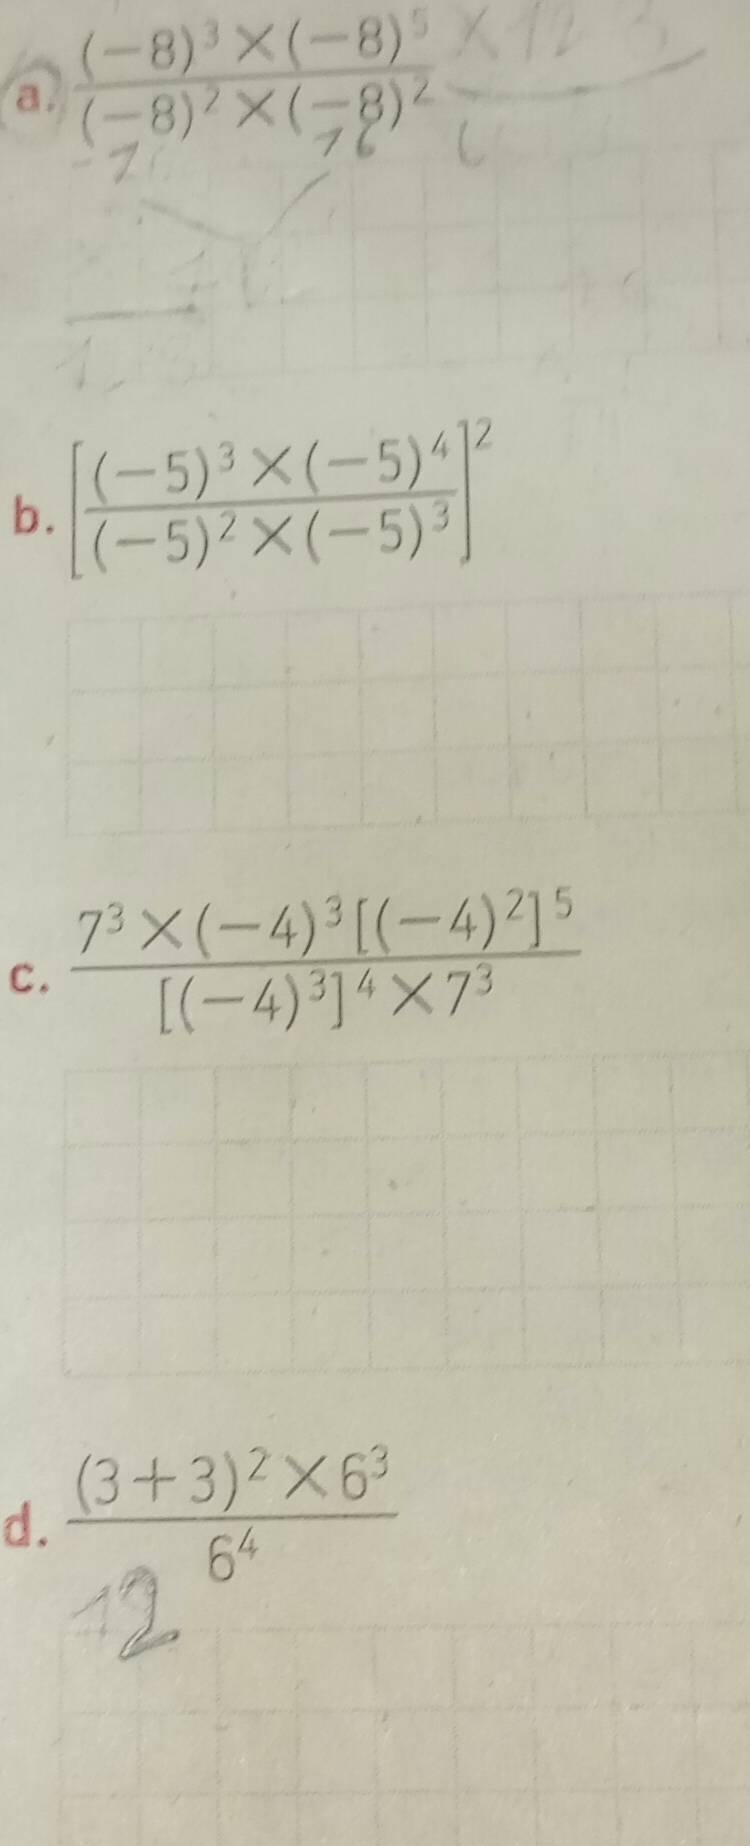 a. \frac{(-8)^3 × (-8)^5}{(-8)^2 × (-8)^2}
b. \left[\frac{(-5)^3 × (-5)^4}{(-5)^2 × (-5)^3}\right]^2
c. \frac{7^3 × (-4)^3 [(-4)^2]^5}{[(-4)^3]^4 × 7^3}
d. \frac{(3+3)^2 × 6^3}{6^4}
12